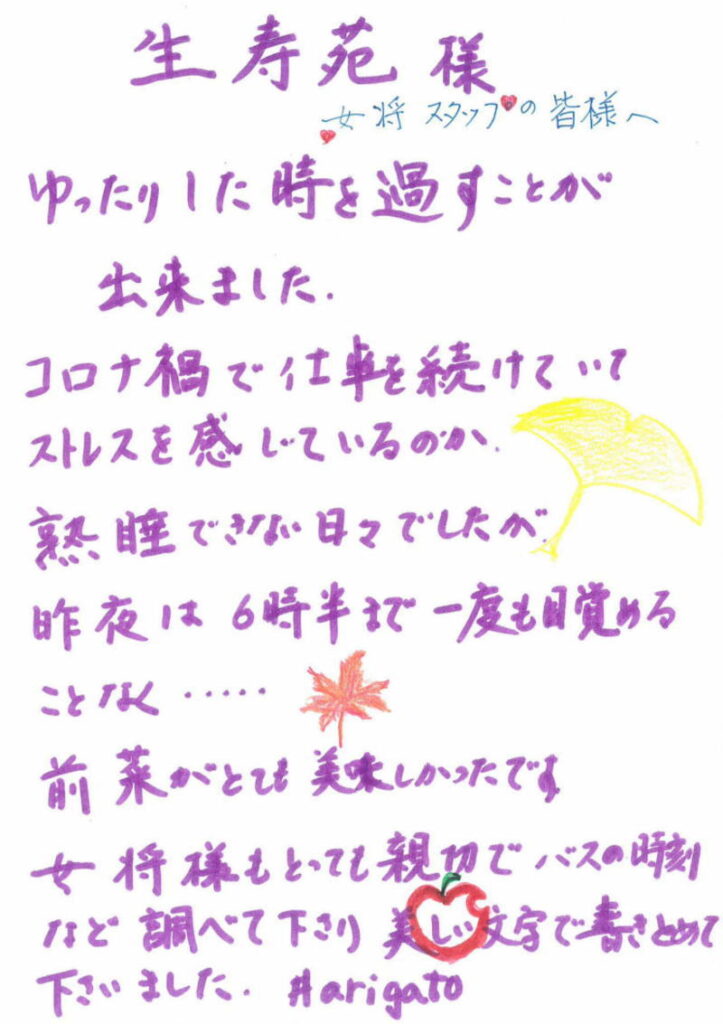 生寿苑 様
女将 スタッフの 皆様へ
ゆったりした時を過すことが
出来ました.
コロナ禍で仕事を続けていて
ストレスを感じているのか.
熟睡できない日々でしたが.
昨夜は 6時半まで 一度も目覚める
ことなく ・・・・・
前菜がとても 美味しかったです
女将様もとっても親切で バスの時刻
など 調べて下さり 美しい文字で書きとめて
下さいました. #arigato